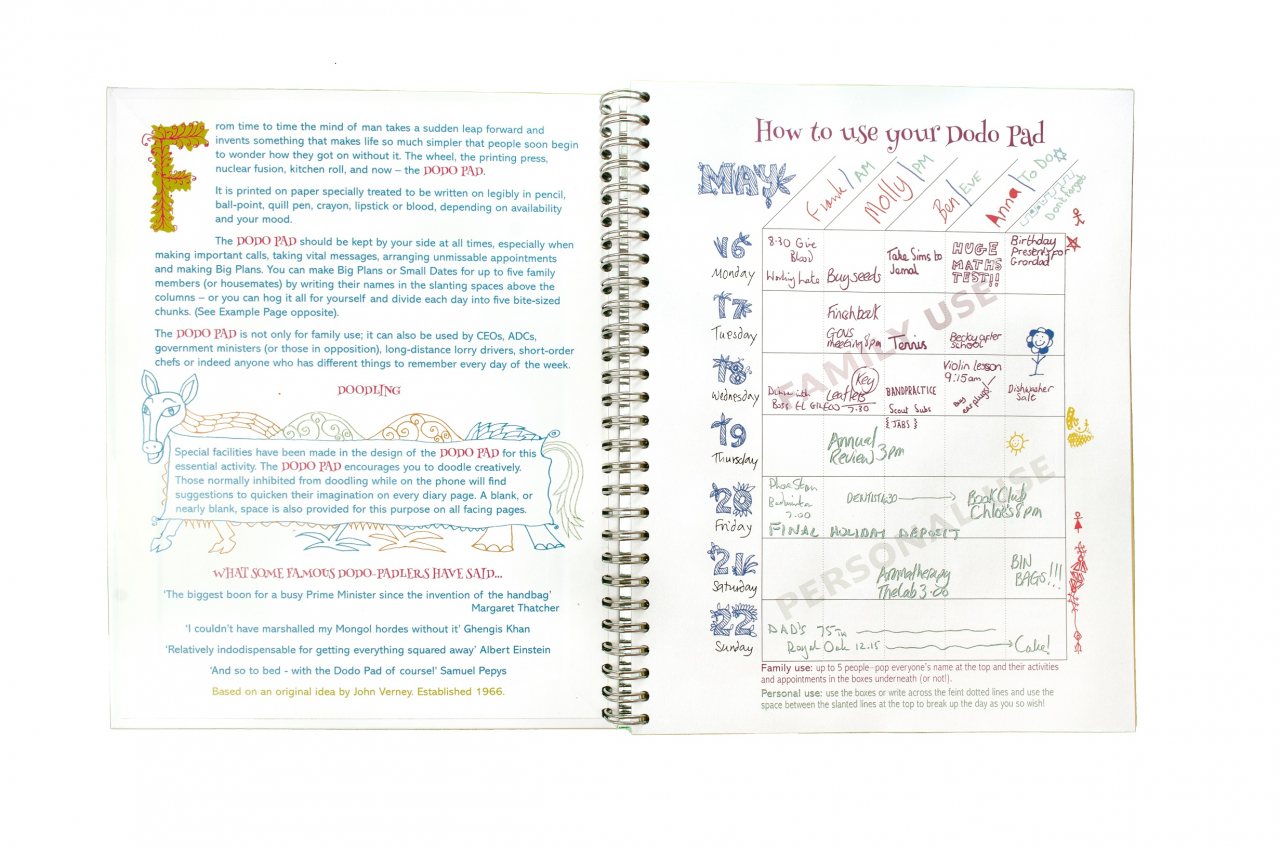 From time to time the mind of man takes a sudden leap forward and
invents something that makes life so much simpler that people soon begin
to wonder how they got on without it. The wheel, the printing press,
nuclear fusion, kitchen roll, and now – the DODO PAD.
It is printed on paper specially treated to be written on legibly in pencil,
ball-point, quill pen, crayon, lipstick or blood, depending on availability
and your mood.
The DODO PAD should be kept by your side at all times, especially when
making important calls, taking vital messages, arranging unmissable appointments
and making Big Plans. You can make Big Plans or Small Dates for up to five family
members (or housemates) by writing their names in the slanting spaces above the
columns – or you can hog it all for yourself and divide each day into five bite-sized
chunks. (See Example Page opposite).
The DODO PAD is not only for family use; it can also be used by CEOs, ADCs,
government ministers (or those in opposition), long-distance lorry drivers, short-order
chefs or indeed anyone who has different things to remember every day of the week.
DOODLING
Special facilities have been made in the design of the DODO PAD for this
essential activity. The DODO PAD encourages you to doodle creatively.
Those normally inhibited from doodling while on the phone will find
suggestions to quicken their imagination on every diary page. A blank, or
nearly blank, space is also provided for this purpose on all facing pages.
WHAT SOME FAMOUS DODO-PADLERS HAVE SAID...
'The biggest boon for a busy Prime Minister since the invention of the handbag'
Margaret Thatcher
'I couldn't have marshalled my Mongol hordes without it' Ghengis Khan
'Relatively indodispensable for getting everything squared away' Albert Einstein
'And so to bed - with the Dodo Pad of course!' Samuel Pepys
Based on an original idea by John Verney. Established 1966.
How to use your Dodo Pad
MAY
Frank / AM
Molly / PM
Ben / EVE
Anna / To Do
Don't Forget
16
Monday
8.30 Give
Blood
Working Late
Buy seeds
Take Sims to
Jamal
HUGE
MATHS
TEST!!
Birthday
Present for
Grandad
17
Tuesday
Finch back
GOVS
meeting 8pm
Tennis
Becky after
school
FAMILY USE
18
Wednesday
Boss El
7.30
Key
Leaflets
BAND PRACTICE
Scout Subs
Violin lesson
9:15am
Buy
ear plugs!
Dishwasher
Sale
19
Thursday
Annual
Review 3pm
{JABS}
20
Friday
Badminton
7.00
DENTIST 4.30
Book Club
Chloe's 8pm
FINAL HOLIDAY DEPOSIT
PERSONAL USE
21
Saturday
Aromatherapy
The Lab 3-00
BIN
BAGS!!!
22
Sunday
DAD'S 75TH
Royal Oak 12.15
Cake!
Family use: up to 5 people–pop everyone's name at the top and their activities
and appointments in the boxes underneath (or not!).
Personal use: use the boxes or write across the feint dotted lines and use the
space between the slanted lines at the top to break up the day as you so wish!